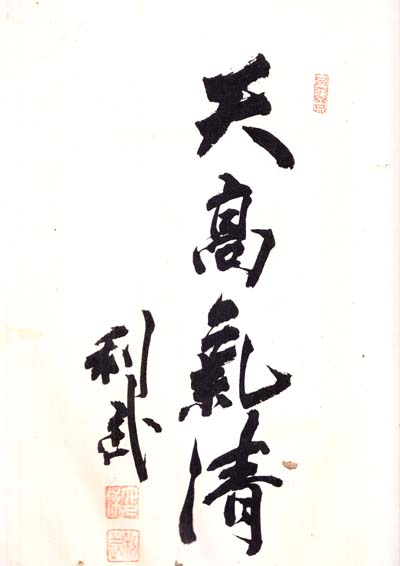 天高氣清
利武